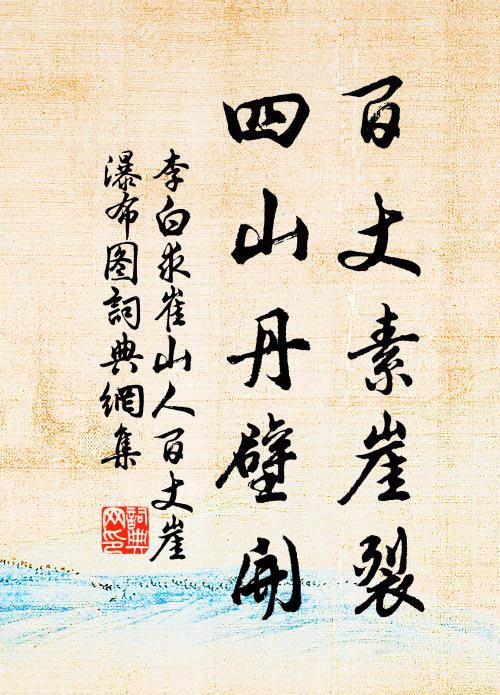 百丈素崖裂
四山丹壁開
李白求崔山人百丈崖
瀑布图詞典網集
詞典
网印